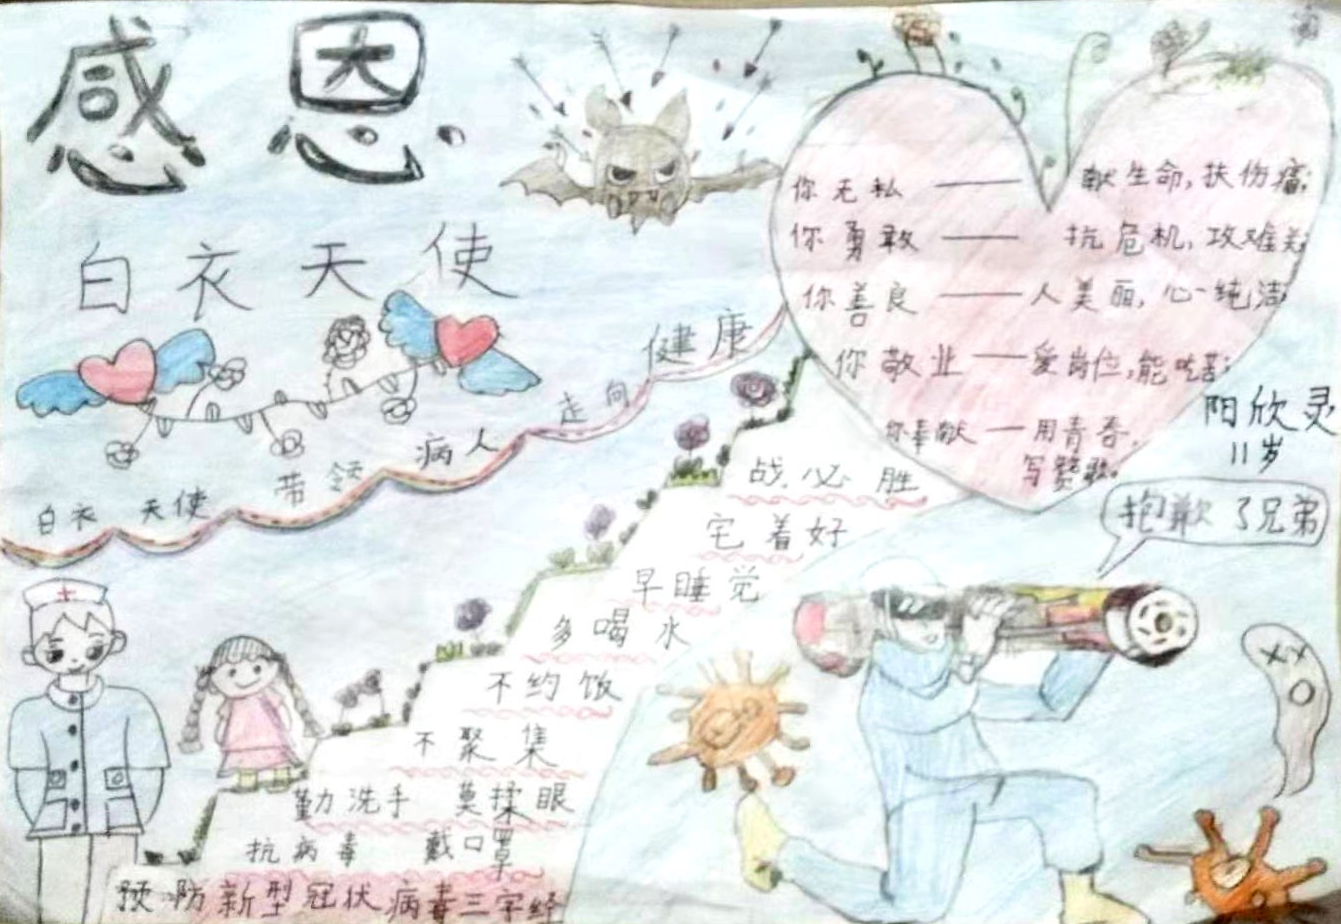 感恩
白衣天使
白衣天使带领病人走向健康
你无私——献生命,扶伤痛;
你勇敢——抗危机,攻难关;
你善良——人美丽,心纯洁;
你敬业——爱岗位,能吃苦;
你奉献—用青春,
写赞歌。
阳欣灵
11岁
抱歉了兄弟
战必胜
宅着好
早睡觉
多喝水
不约饭
不聚集
勤洗手 莫揉眼
抗病毒 戴口罩
预防新型冠状病毒三字经